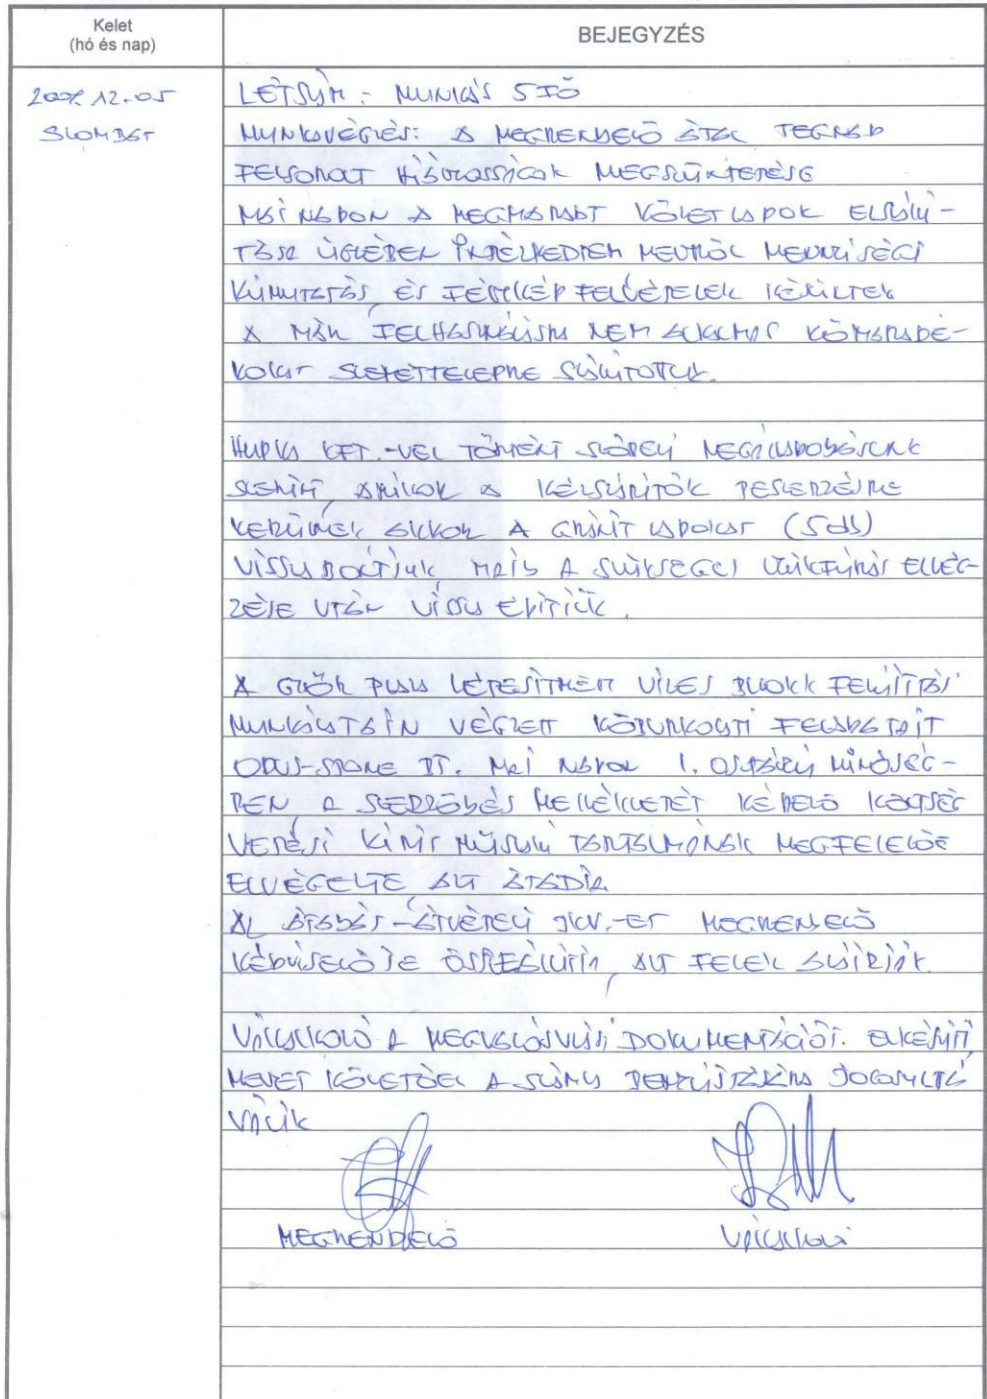 Kelet
(hó és nap)
BEJEGYZÉS
12.05
SZOMBAT
LÉTSZÁM: MUNKÁS 5 FŐ
MUNKAVÉGZÉS: A MEGRENDELŐ ÁTAL TEGNAP
FELSOROLT HIÁNYOSSÁGOK MEGSZÜNTETÉSE
MAI NAPON A MEGMARADT KŐLETLAPOK ELSZÁLÍ-
TÁSA ÜGYÉBEN INTÉZKEDTEM MENNYISÉGI
KIMUTATÁS ÉS FÉNYKÉP FELVÉTELEK KÉSZÜLTEK
A MÁR FELHASZNÁLÁSRA NEM ALKALMAS KŐMARADÉ-
KOKAT SZEMÉTTELEPRE SZÁLÍTOTTUK.
KFT.-VEL TÖRTÉNT SZÓBELI MEGÁLLAPODÁSUNK
SZERINT AMIKOR A
KERÜLNEK AKKOR A GRÁNIT LAPOKAT (5db)
VISSZA BONTJUK MAJD A SZÜKSÉGES ELVÉG-
ZÉSE UTÁN VISSZA ÉPÍTJÜK.
A GYŐR PLAZA LÉTESÍTMÉNY VIZES BLOKK FELÚJÍTÁSI
MUNKÁLATAIN VÉGZETT KŐBURKOLATI FELADATAIT
OPUS-STONE BT. MAI NAPON I. OSZTÁLYÚ MINŐSÉG-
BEN A SZERZŐDÉS MELLÉKLETÉT KÉPEZŐ KÖLTSÉG
VETÉSI KIÍRÁS MŰSZAKI TARTALMÁNAK MEGFELELŐE
ELVÉGEZTE AZT ÁTADJA.
AZ ÁTADÁS-ÁTVÉTELI JKV.-ET MEGRENDELŐ
KÉPVISELŐJE ÖSSZEÁLLÍTJA, AZT FELEK ALÁÍRJÁK.
VÁLLALKOZÓ A MEGVALÓSULÁSI DOKUMENTÁCIÓT ELKÉSZÍTI
MELYET KÖVETŐEN A SZÁMLA BENYÚJTÁSÁRA JOGOSULTTÁ
VÁLIK
MEGRENDELŐ
VÁLLALKOZÓ